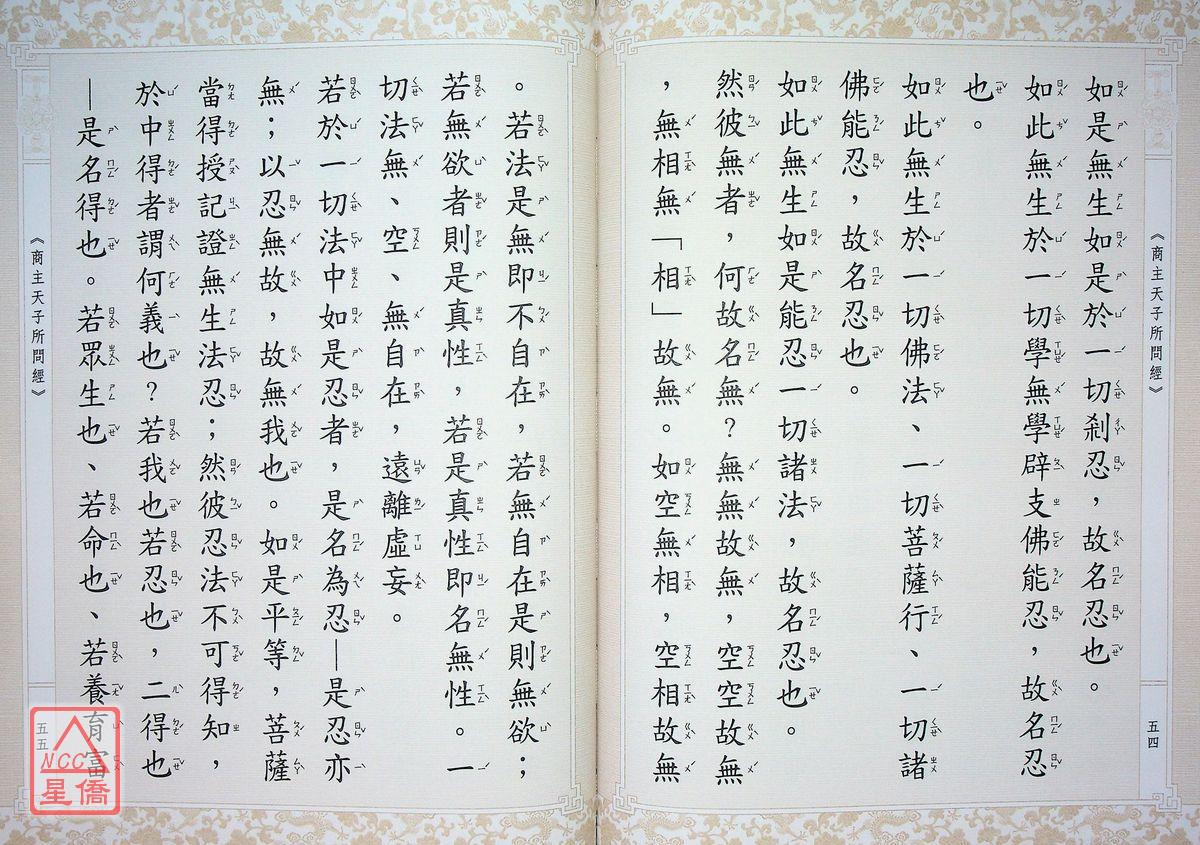 《商主天子所問經》
五四
如是無生如是於一切剎忍，故名忍也。
如此無生於一切學無學辟支佛能忍，故名忍
也。
如此無生於一切佛法、一切菩薩行、一切諸
佛能忍，故名忍也。
如此無生如是能忍一切諸法，故名忍也。
然彼無者，何故名無？無無故無，空空故無
，無相無「相」故無。如空無相，空相故無
。若法是無即不自在，若無自在是則無欲；
若無欲者則是真性，若是真性即名無性。一
切法無、空、無自在，遠離虛妄。
若於一切法中如是忍者，是名為忍—是忍亦
無；以忍無故，故無我也。如是平等，菩薩
當得授記證無生法忍；然彼忍法不可得知，
於中得者謂何義也？若我也若忍也，二得也
—是名得也。若眾生也、若命也、若養育富
《商主天子所問經》
五五
NCC
星僑